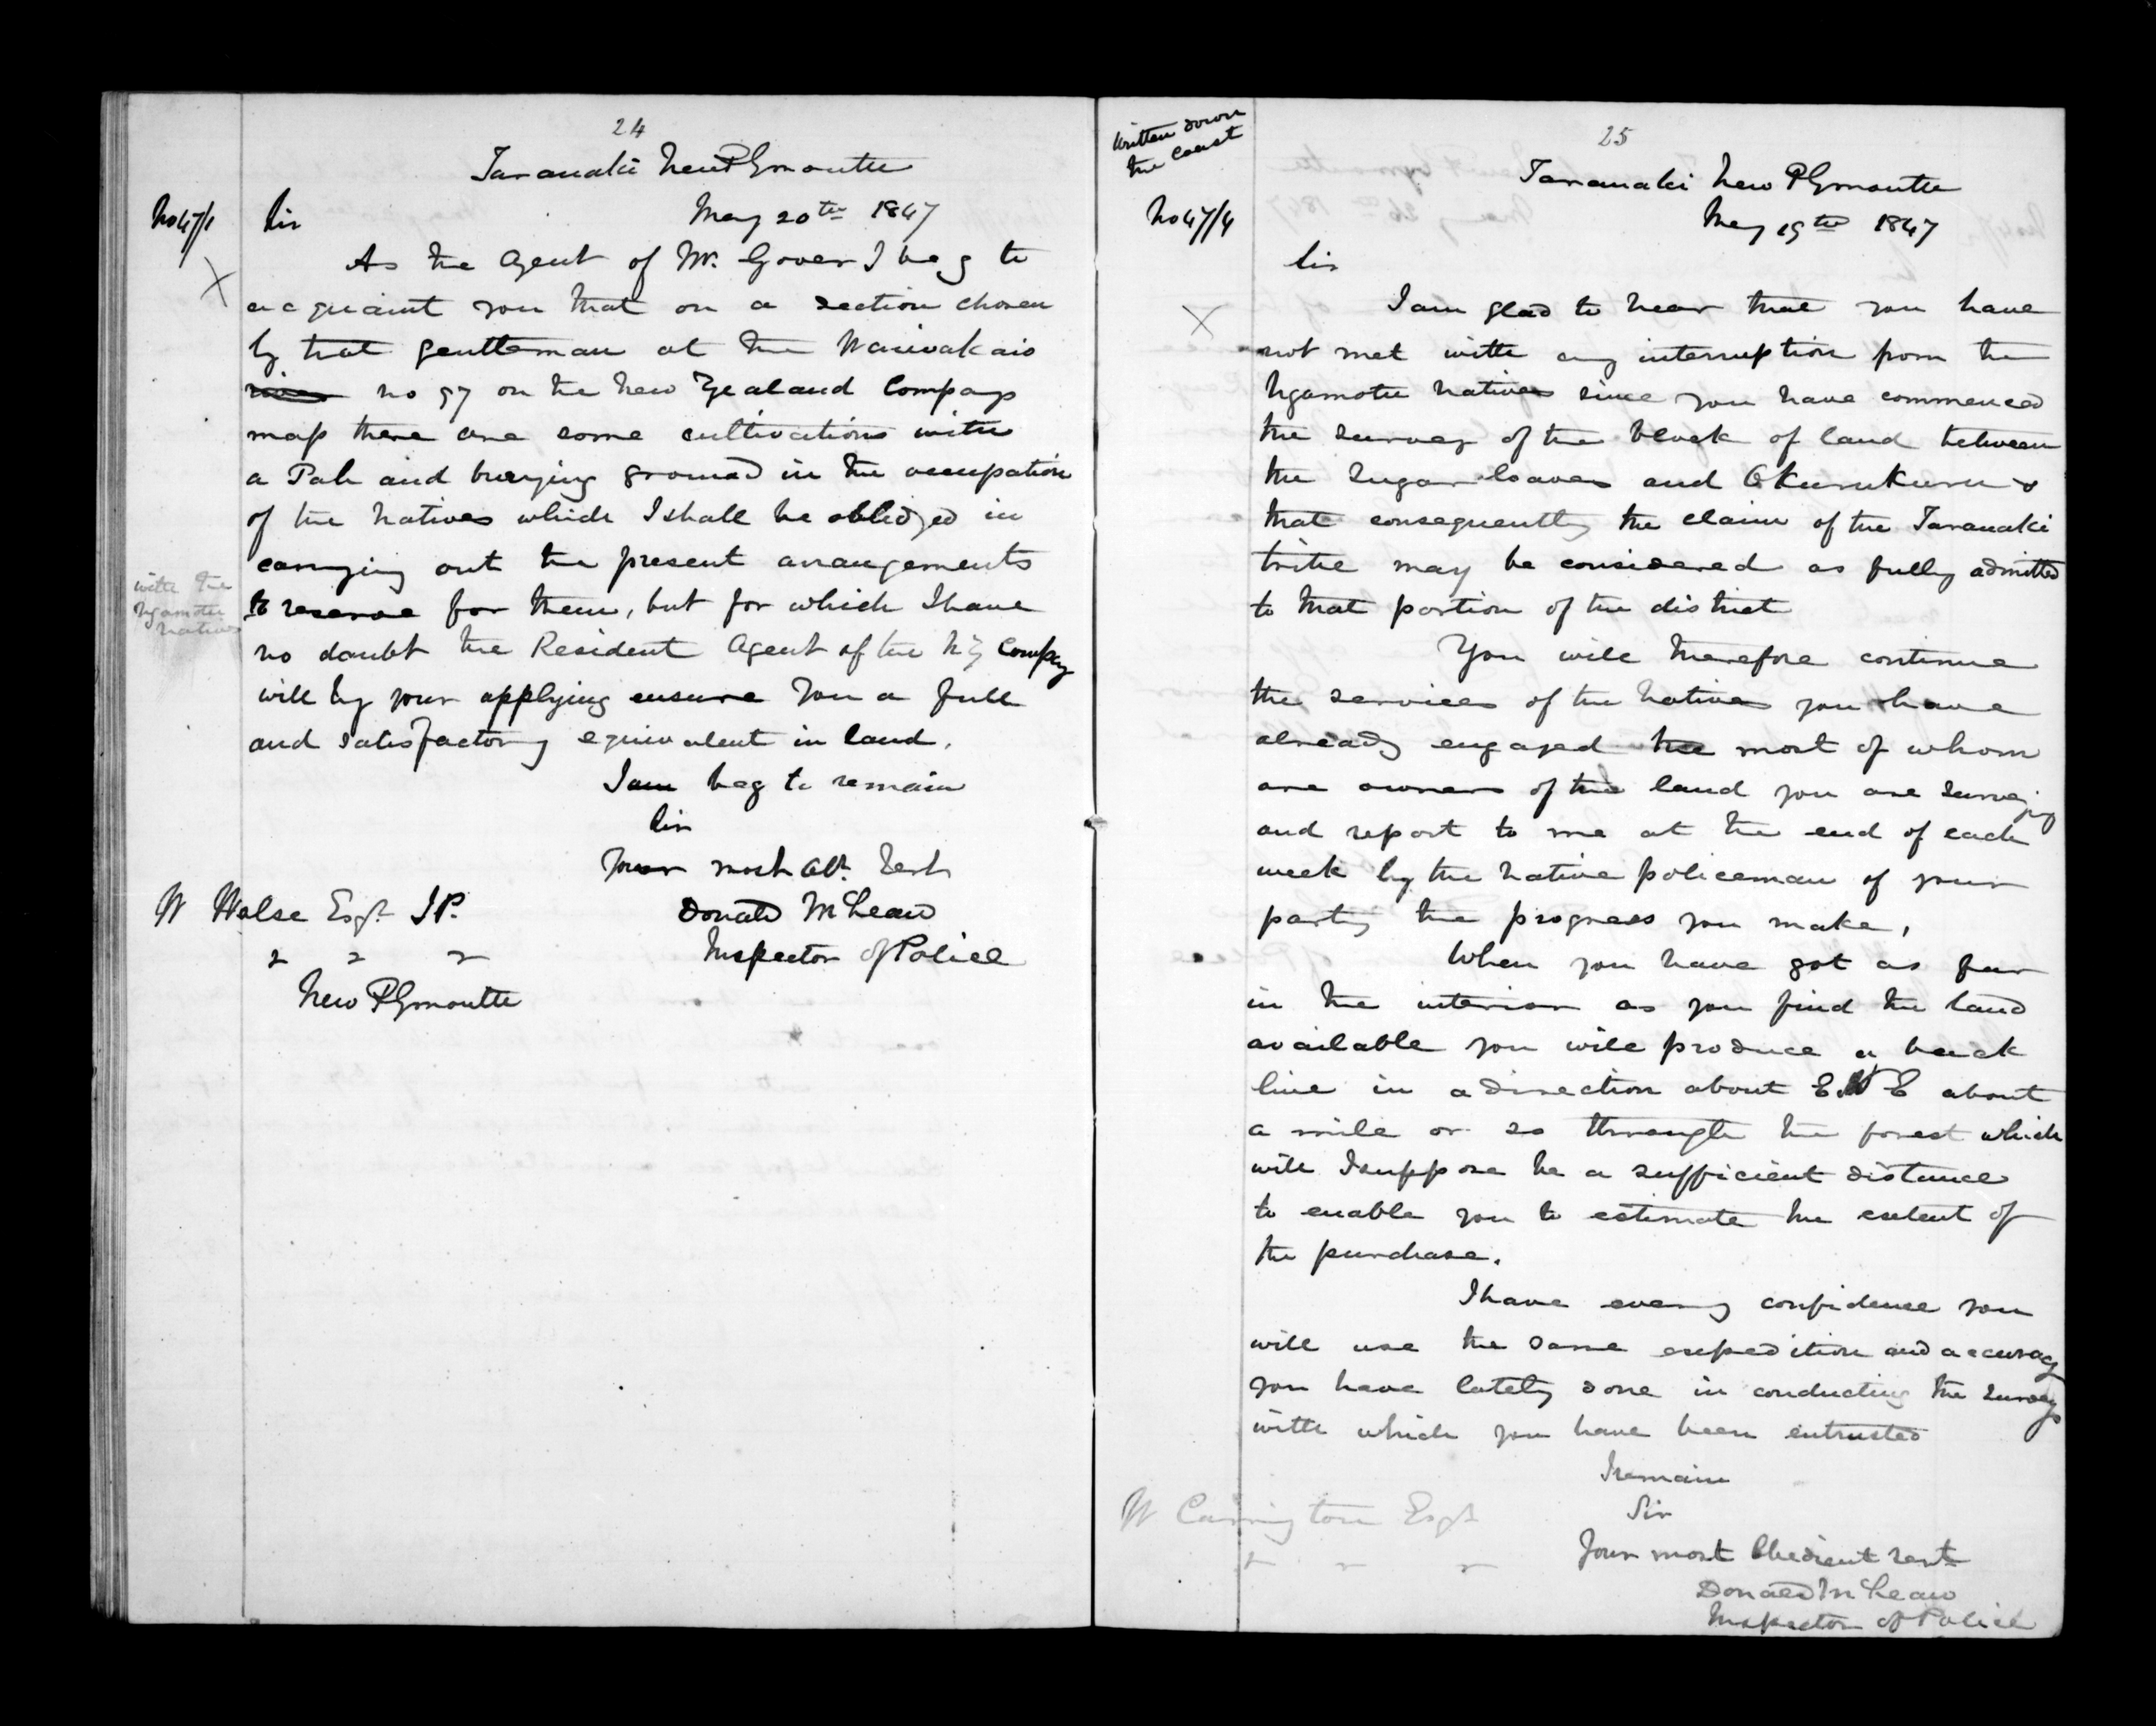 24
Taranaki New Plymouth
No 47/1 Sir May 20th 1847
As the Agent of Mr. Gover I beg to
acquaint you that on a section chosen
by that gentleman at the Waiwakaio
no 97 on the New Zealand Compays
map there are some cultivations with
a Pah and burying ground in the occupation
of the Natives which I shall be oblidged in
carrying out the present arrangements
with the
Ngamotu
natives
to reserve for them, but for which I have
no doubt the Resident Agent of the NZ Compy
will by your applying ensure you a full
and satisfactory equivalent in land.
I am beg to remain
Sir
Your most Obt. Servt
W Halse Esqr. J.P. Donald McLean
" " " Inspector of Police
New Plymouth
written down
the Coast
25
Taranaki New Plymouth
No 47/4 May 19th 1847
Sir
I am glad to hear that you have
not met with any interruption from the
Ngamotu natives since you have commenced
the survey of the block of land between
the Sugar loaves and Okurukuru &
that consequently the claim of the Taranaki
tribe may be considered as fully admitted
to that portion of the district
You will therefore continue
the services of the natives you have
already engaged the most of whom
are owners of the land you are surveying
and report to me at the end of each
week by the native policeman of your
party the progress you make,
When you have got as far
in the interior as you find the land
available you will produce a back
line in a direction about E E about
a mile or so through the forest which
will I suppose be a sufficient distance
to enable you to estimate the extent of
the purchase.
I have every confidence you
will use the same expedition and accuracy
you have lately done in conducting the surveys
with which you have been entrusted
I remain
W Carrington Esqr Sir
" " " Your most Obedient sert
Donald McLean
Inspector of Police